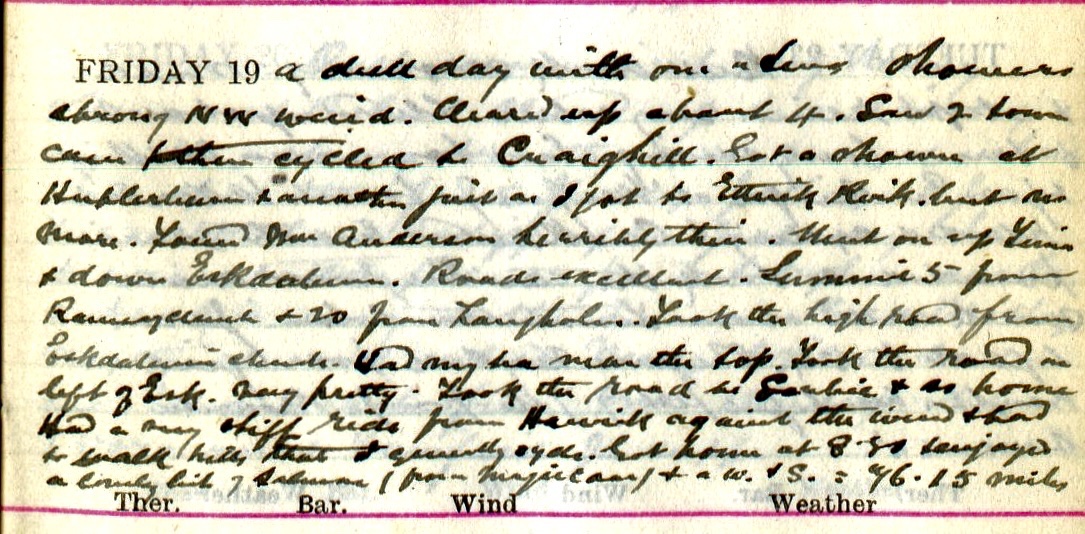 FRIDAY 19 a dull day with one or two showers
strong NW wind. Cleared up about 4. Saw 2 town
cases then cycled to Craighill. Got a shower at
& another just as I got to Ettrick Kirk. but no
more. Found Wm Anderson terribly thin. Went on up Tima
& down Eskdalemuir. Roads excellent. Summit 5 from
Ramseycleuch & 20 from Langholm. Took the high road from
Eskdalemuir church. Had my tea near the top. Took the road on
left of Esk. very pretty. Took the road to & so home
Had a very stiff ride from Hawick against the wind & had
to walk hills that I generally cycle. Got home at 8 30 & enjoyed
a lovely bit of Salmon (from) & a w. & S. = 76.15 miles
Ther. Bar. Wind Weather